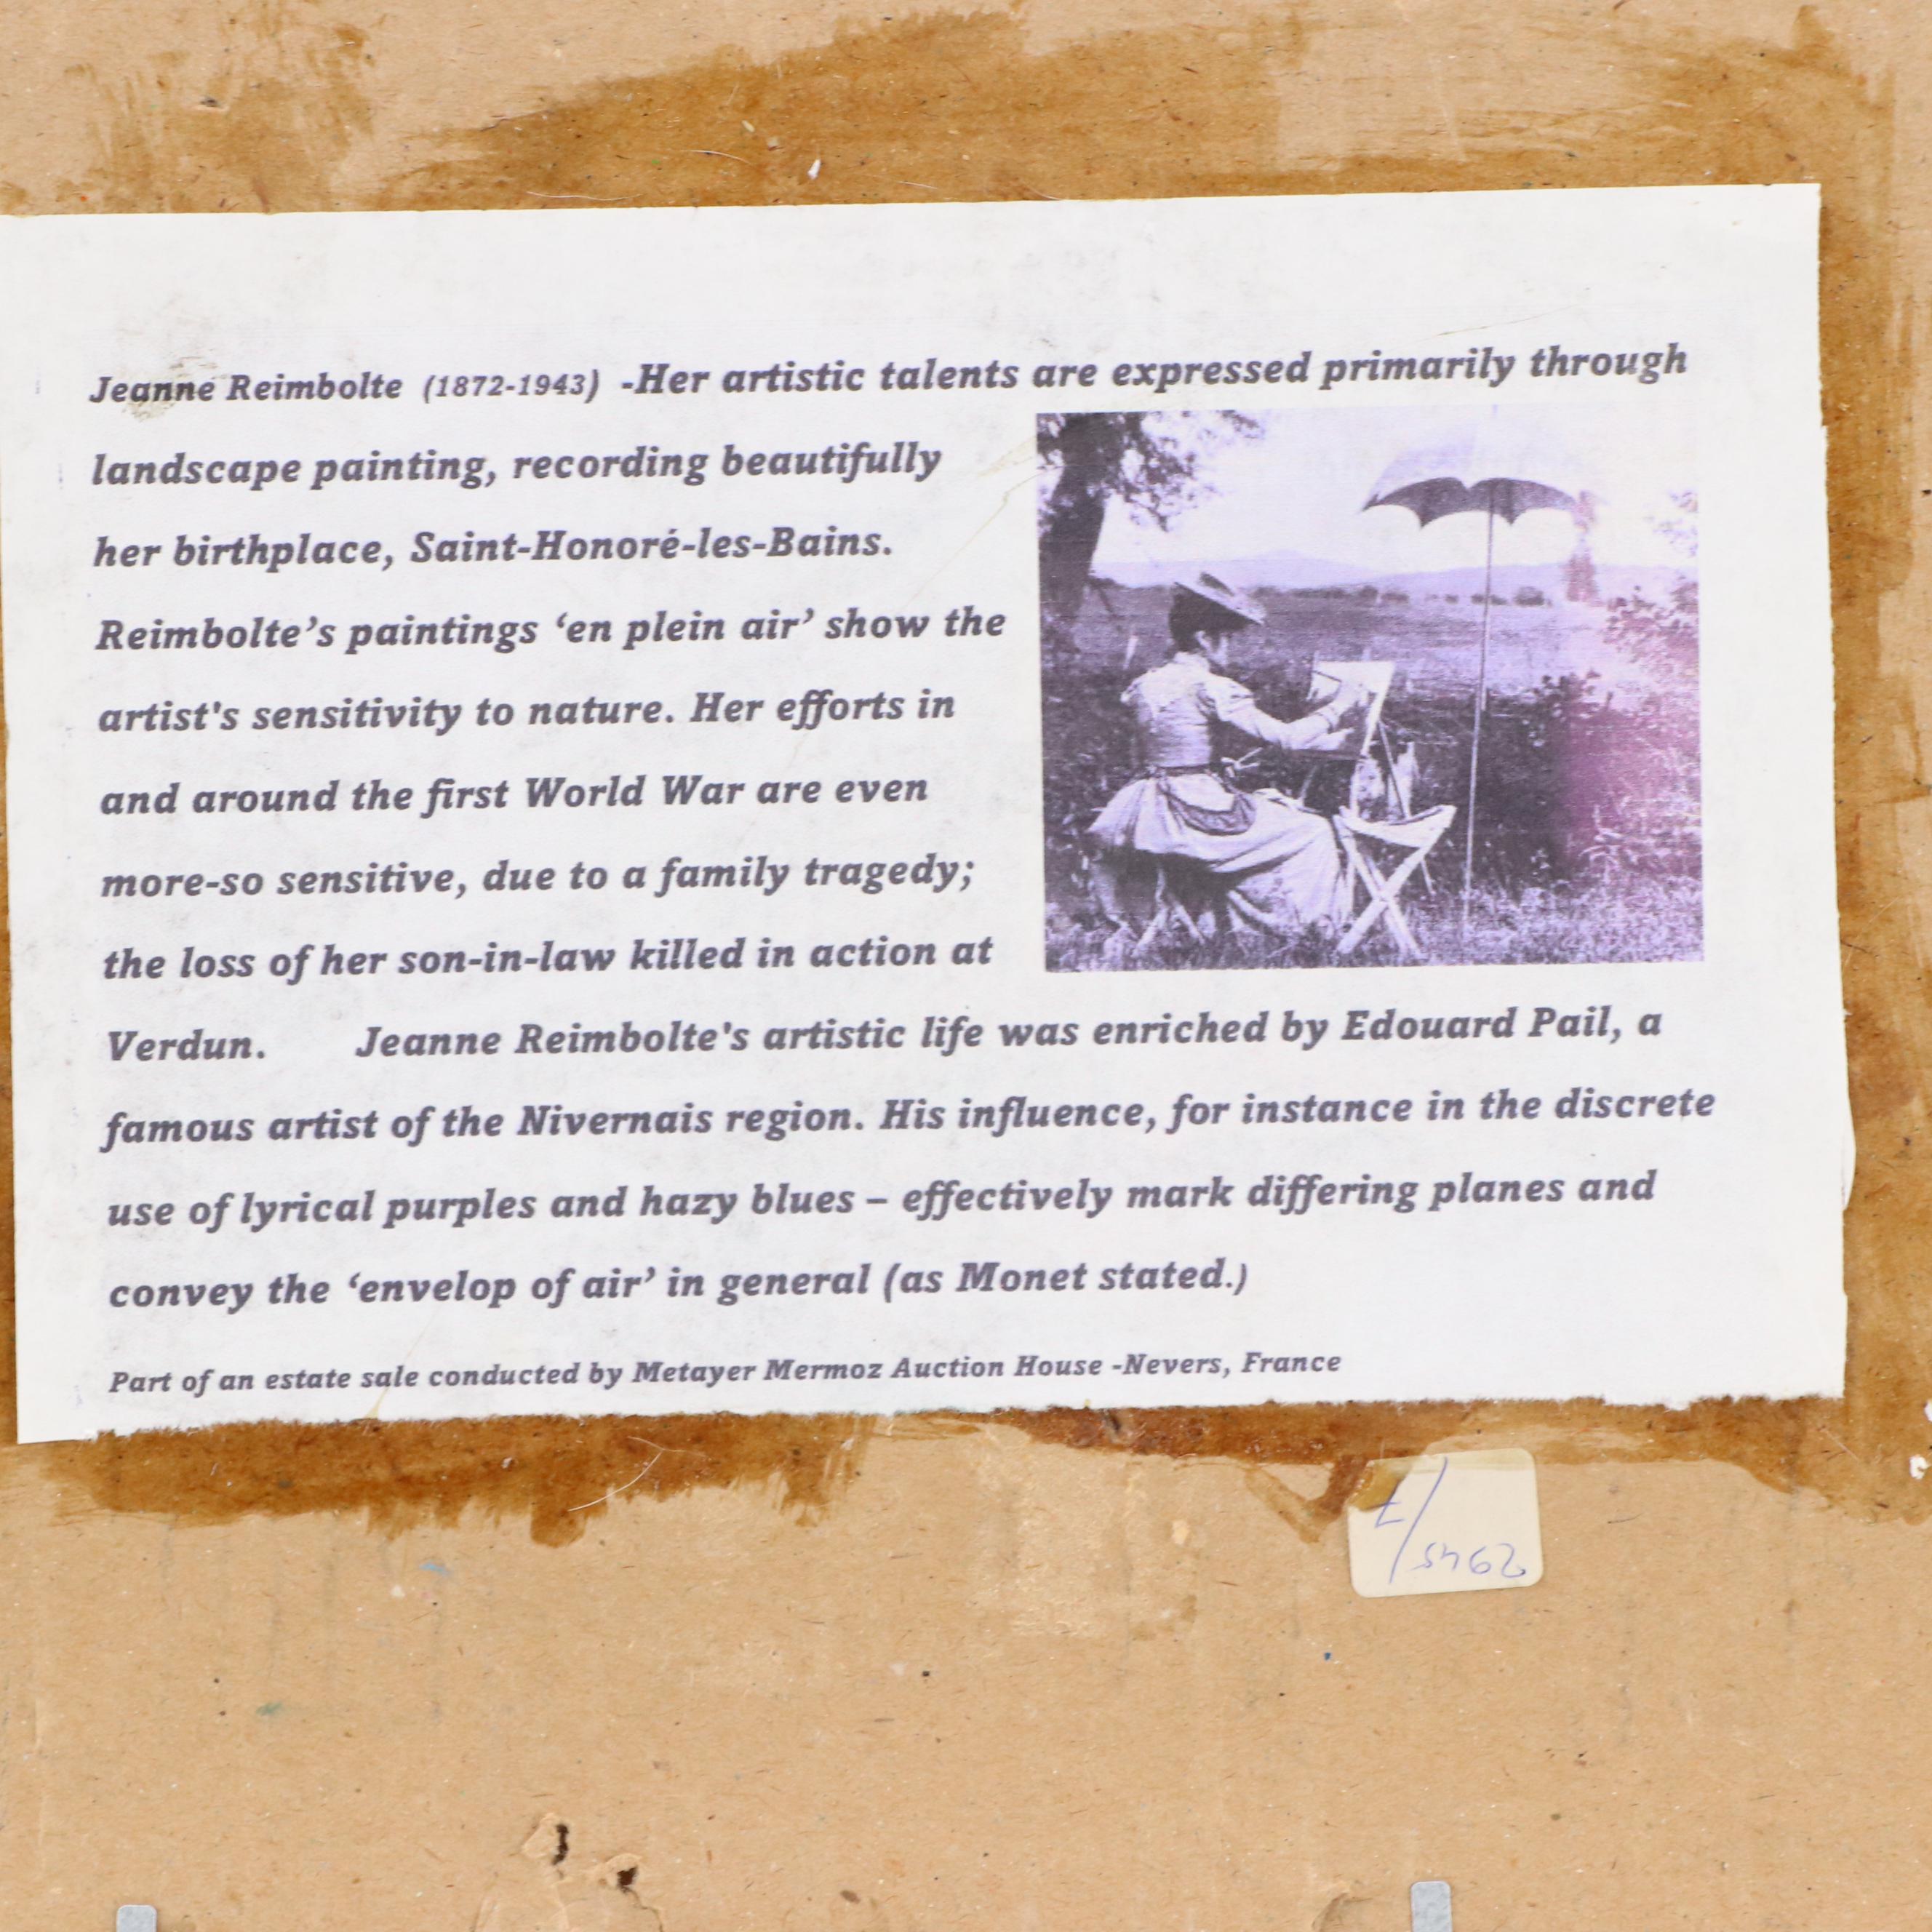 Jeanne Reimbolte (1872-1943) -Her artistic talents are expressed primarily through
landscape painting, recording beautifully
her birthplace, Saint-Honoré-les-Bains.
Reimbolte’s paintings ‘en plein air’ show the
artist's sensitivity to nature. Her efforts in
and around the first World War are even
more-so sensitive, due to a family tragedy;
the loss of her son-in-law killed in action at
Verdun. Jeanne Reimbolte's artistic life was enriched by Edouard Pail, a
famous artist of the Nivernais region. His influence, for instance in the discrete
use of lyrical purples and hazy blues – effectively mark differing planes and
convey the ‘envelop of air’ in general (as Monet stated.)
Part of an estate sale conducted by Metayer Mermoz Auction House -Nevers, France